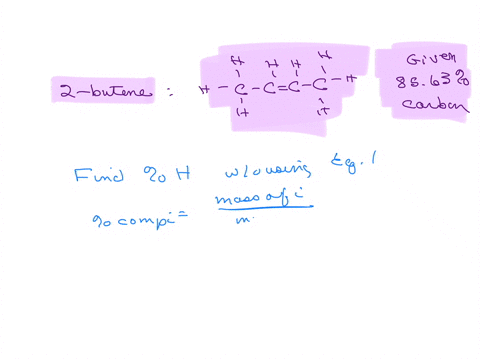 2-butene :
H H H H
H - C - C = C - C - H
H H
Given
85.63%
carbon
Find %H w/o using Eq. 1
% comp i = mass of i
m